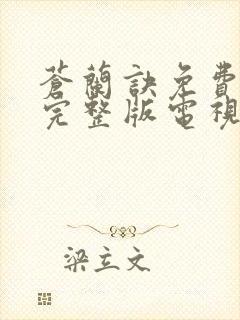 蒼蘭訣免費
完整版電視
梁立文